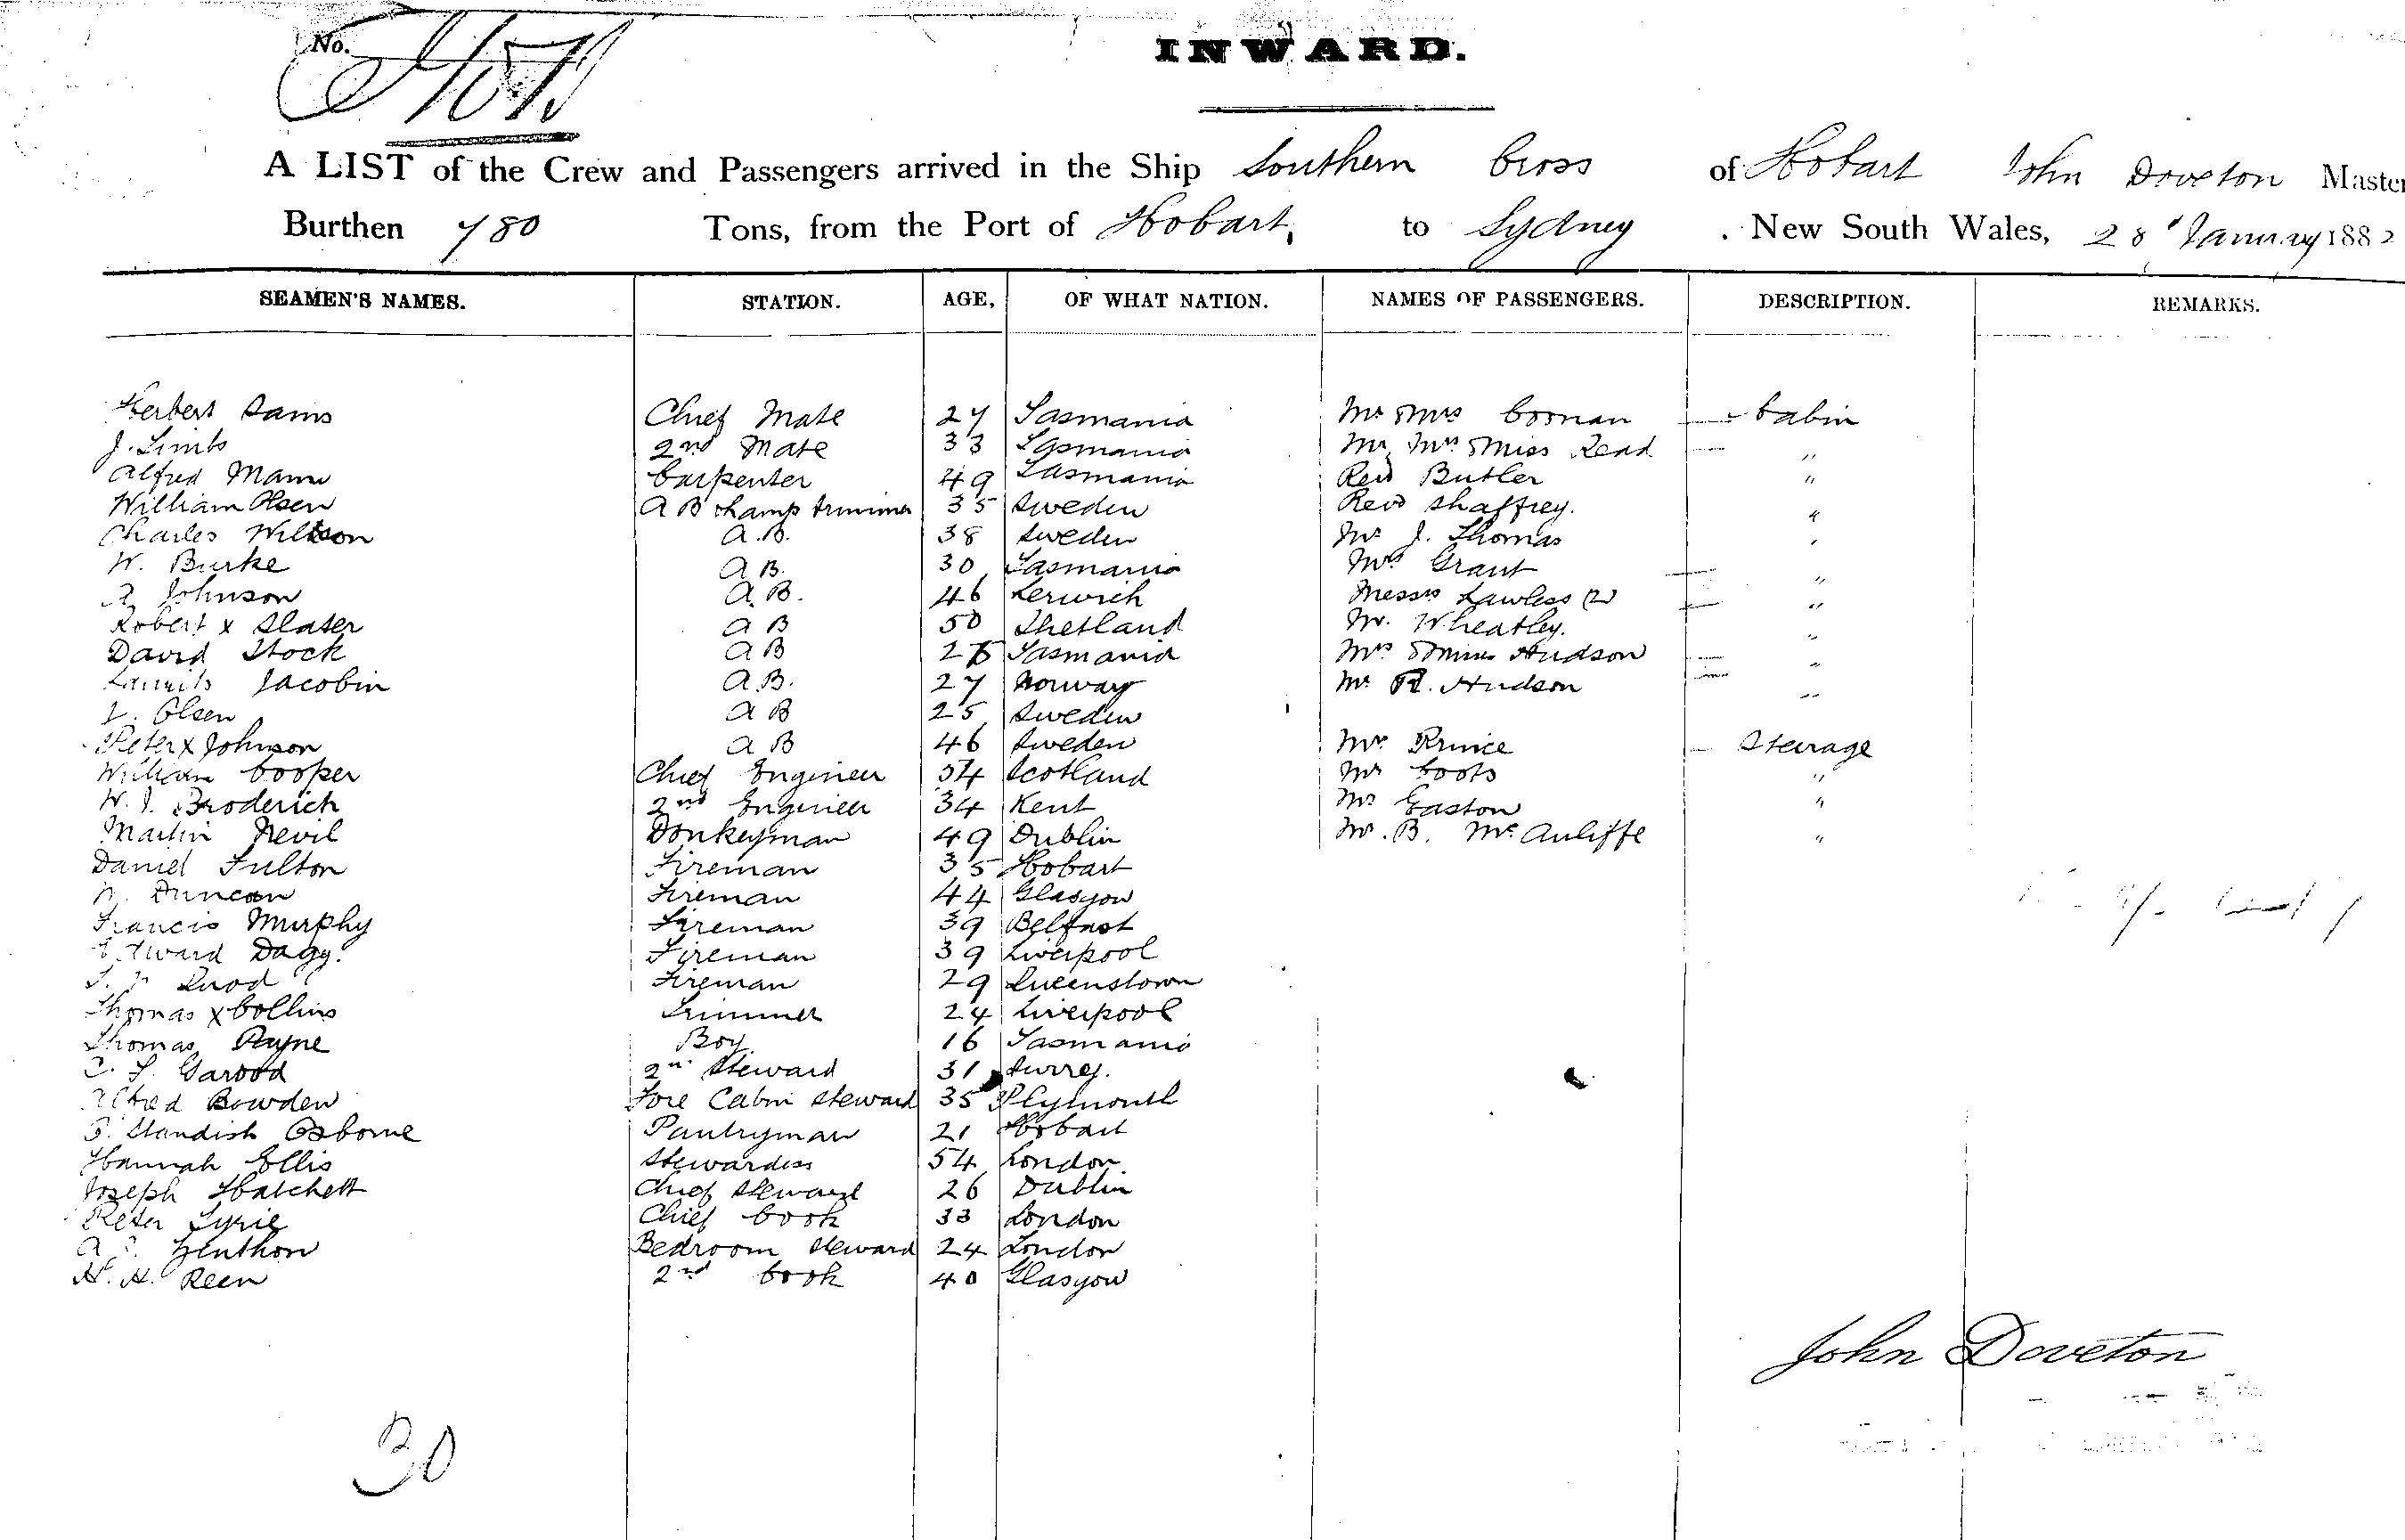 No.
INWARD.
A LIST of the Crew and Passengers arrived in the Ship Southern Cross of Hobart John Doveton Master
Burthen 780 Tons, from the Port of Hobart, to Sydney . New South Wales, 28 January 1882
SEAMEN'S NAMES. STATION. AGE, OF WHAT NATION. NAMES OF PASSENGERS. DESCRIPTION. REMARKS.
Herbert Sams Chief Mate 27 Tasmania Mr & Mrs Coonan Cabin
J. Limb 2nd Mate 33 Tasmania Mr, Mrs & Miss Read "
Alfred Mann Carpenter 49 Tasmania Revd Butler "
William Olsen A B & Lamp trimmer 35 Sweden Revd Shaffrey. "
Charles A.B. 38 Sweden Mr J. Thomas "
W. Burke A B. 30 Tasmania Mrs Grant "
Johnson A. B. 46 Lerwich Messrs Lawless (2) "
Robert x Slater A B 50 Shetland Mr. Wheatley. "
David Stock A B Tasmania Mrs & Miss Hudson "
Jacobin A.B. 27 Norway Mr R. Hudson "
Olsen A B 25 Sweden
Peter x Johnson A B 46 Sweden Mr Prince Steerage
William Cooper Chief Engineer 54 Scotland Mr Coots "
W. J. Broderick 2nd Engineer 34 Kent Mr Easton "
Martin Nevil Donkeyman 49 Dublin Mr. B. McAuliffe "
Daniel Fulton Fireman 35 Hobart
Duncan Fireman 44 Glasgow
Francis Murphy Fireman 39 Belfast
Edward Dagg. Fireman 39 Liverpool
Fireman 29 Queenstown
Thomas x Collins Trimmer 24 Liverpool
Thomas Payne Boy 16 Tasmania
C. T. Garood 2nd Steward 31 Surrey.
Alfred Bowden Fore Cabin Steward 35 Plymouth
Standish Osborne Pantryman 21 Hobart
Hannah Ellis Stewardess 54 London
Joseph Hatchett Chief Steward 26 Dublin
Peter Lyrie Chief Cook 33 London
A Bedroom Steward 24 London
H. H. Reen 2nd Cook 40 Glasgow
John Doveton
30